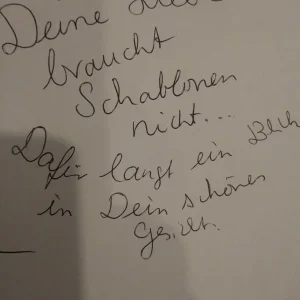 Deine
braucht
Schablonen
nicht...
Dafür langt ein
in Dein schönes
Gesicht.